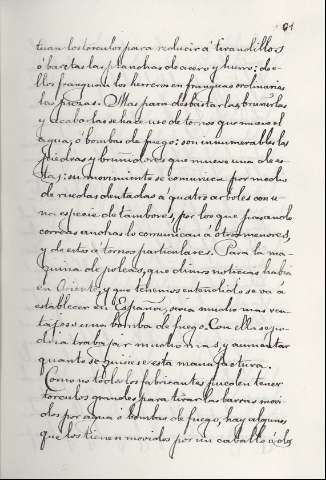 61
tuan los tórculos para reducir á tirandillos
ó baretas las planchas de acero y hierro: de e-
llos franquan los herreros en franguas ordinarias
las piezas. Mas para desbastarlas bruñirlas
y acabarlas se hace uso de tornos que mueve el
agua, ó bombas de fuego: son innumerables las
piedras y bruñidores que mueve una de es-
tas; su movimiento se comunica por medio
de ruedas dentadas á quatro arboles con u-
na especie de tambores, por los que pasando
correas anchas lo comunican á otros menores,
y de estos á tornos particulares. Para la ma-
quina de poleas, que dimos noticias había
en Oriente y que tenemos entendido se va á
establecer en España, sería mucho mas ven-
tajosa una bomba de fuego. Con ella se po-
dria trabajar mucho mas, y aumentar
quanto se quisiese esta manufactura.
Como no todos los fabricantes pueden tener
tórculos grandes para tirar las barras movi-
dos por agua ó bombas de fuego, hay algunos
que los tienen movidos por un caballo ó dos